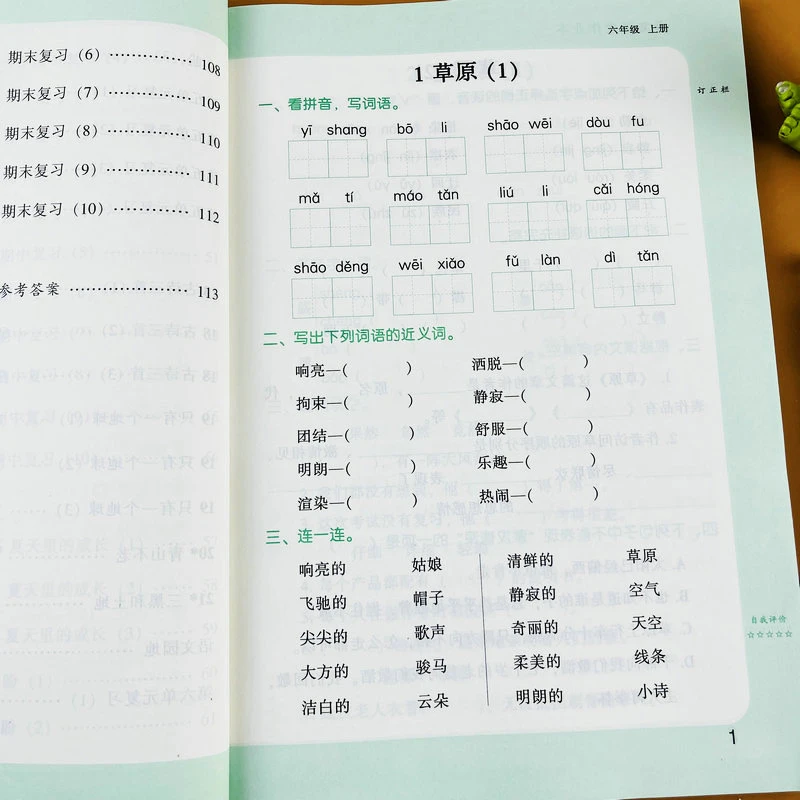 期末复习（6） 108
期末复习（7） 109
期末复习（8） 110
期末复习（9） 111
期末复习（10） 112
参考答案 113
六年级 上册
订正栏
1 草原（1）
一、看拼音，写词语。
yī shang bō li shāo wēi dòu fu
mǎ tí máo tǎn liú li cǎi hóng
shāo děng wēi xiǎo fǔ làn dì tǎn
二、写出下列词语的近义词。
响亮—( ) 洒脱—( )
拘束—( ) 静寂—( )
团结—( ) 舒服—( )
明朗—( ) 乐趣—( )
渲染—( ) 热闹—( )
三、连一连。
响亮的 姑娘 清鲜的 草原
飞驰的 帽子 静寂的 空气
尖尖的 歌声 奇丽的 天空
大方的 骏马 柔美的 线条
洁白的 云朵 明朗的 小诗
自我评价
☆☆☆☆☆
1